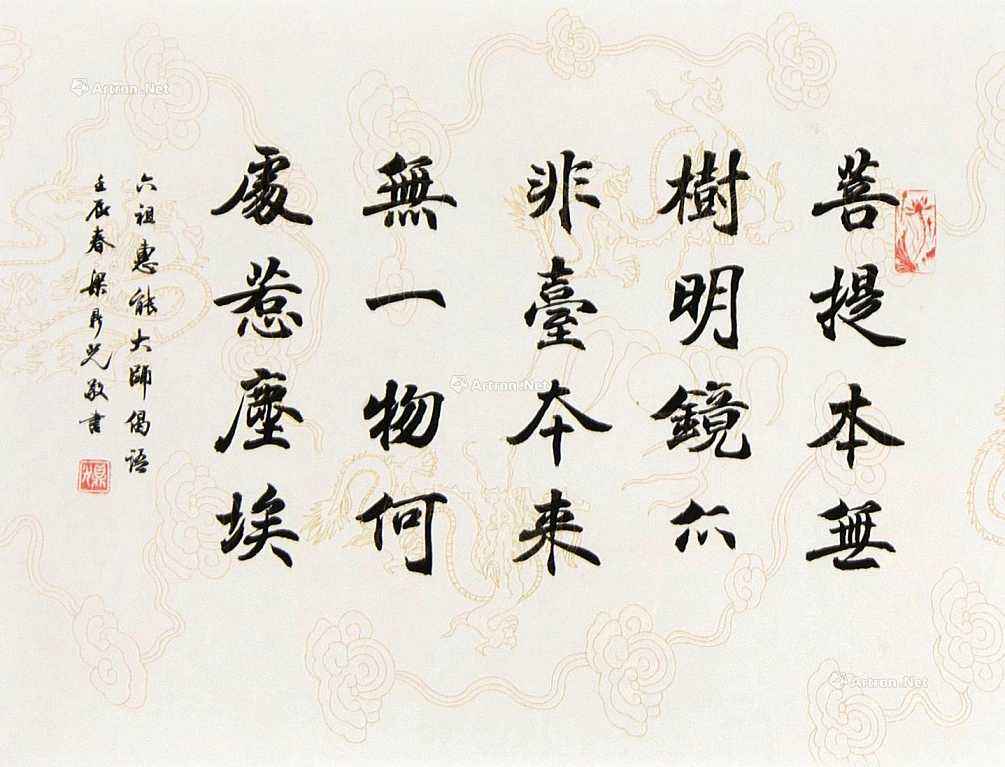 菩提本無
樹明鏡亦
非臺本来
無一物何
處惹塵埃
六祖惠能大師偈語
壬辰春梁鼎光敬書
Artron.Net
Artron.Net
Artron.Net